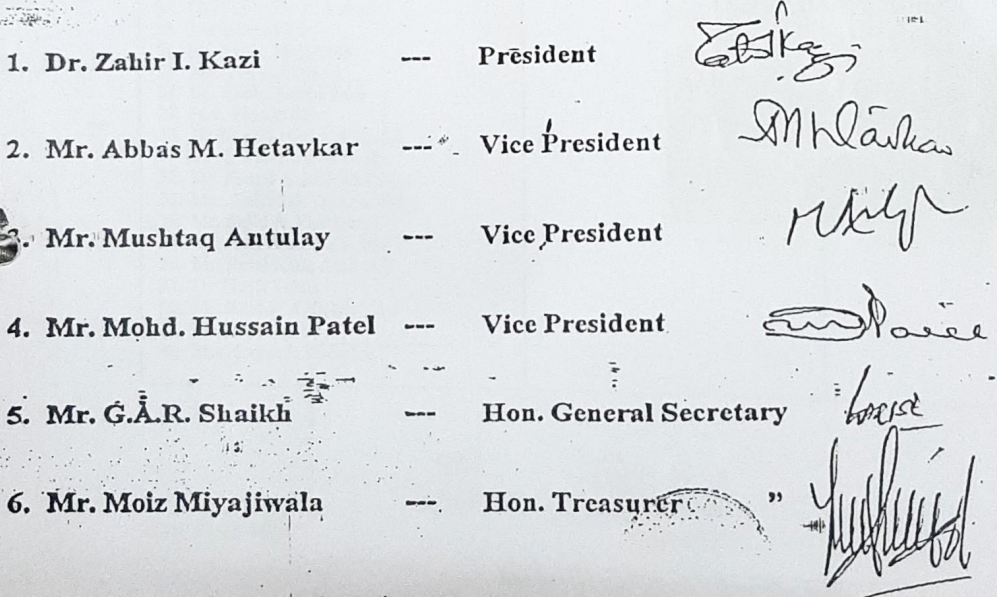 1. Dr. Zahir I. Kazi --- President
2. Mr. Abbas M. Hetavkar --- Vice President
3. Mr. Mushtaq Antulay --- Vice President
4. Mr. Mohd. Hussain Patel --- Vice President
5. Mr. G.A.R. Shaikh --- Hon. General Secretary
6. Mr. Moiz Miyajiwala --- Hon. Treasurer ”